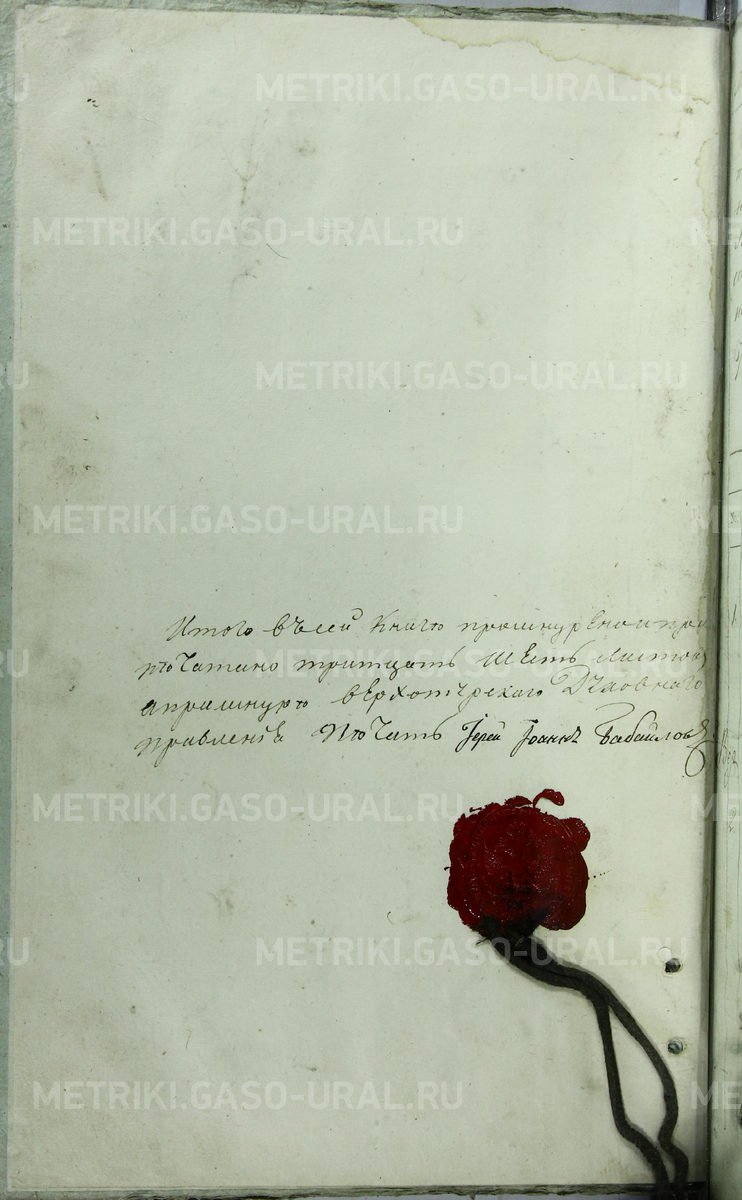 METRIKI.GASO-URAL.RU
METRIKI.GASO-URAL.RU
METRIKI.GASO-URAL.RU
METRIKI.GASO-URAL.RU
Итого въ сей книгѣ прошнурено и при
пѣчатано тритцать шесть листовъ
а при шнурѣ верхотурскаго Духовнаго
правленія пѣчать Іерей Іоаннъ Бабайловъ
METRIKI.GASO-URAL.RU
METRIKI.GASO-URAL.RU
METRIKI.GASO-URAL.RU
METRIKI.GASO-URAL.RU